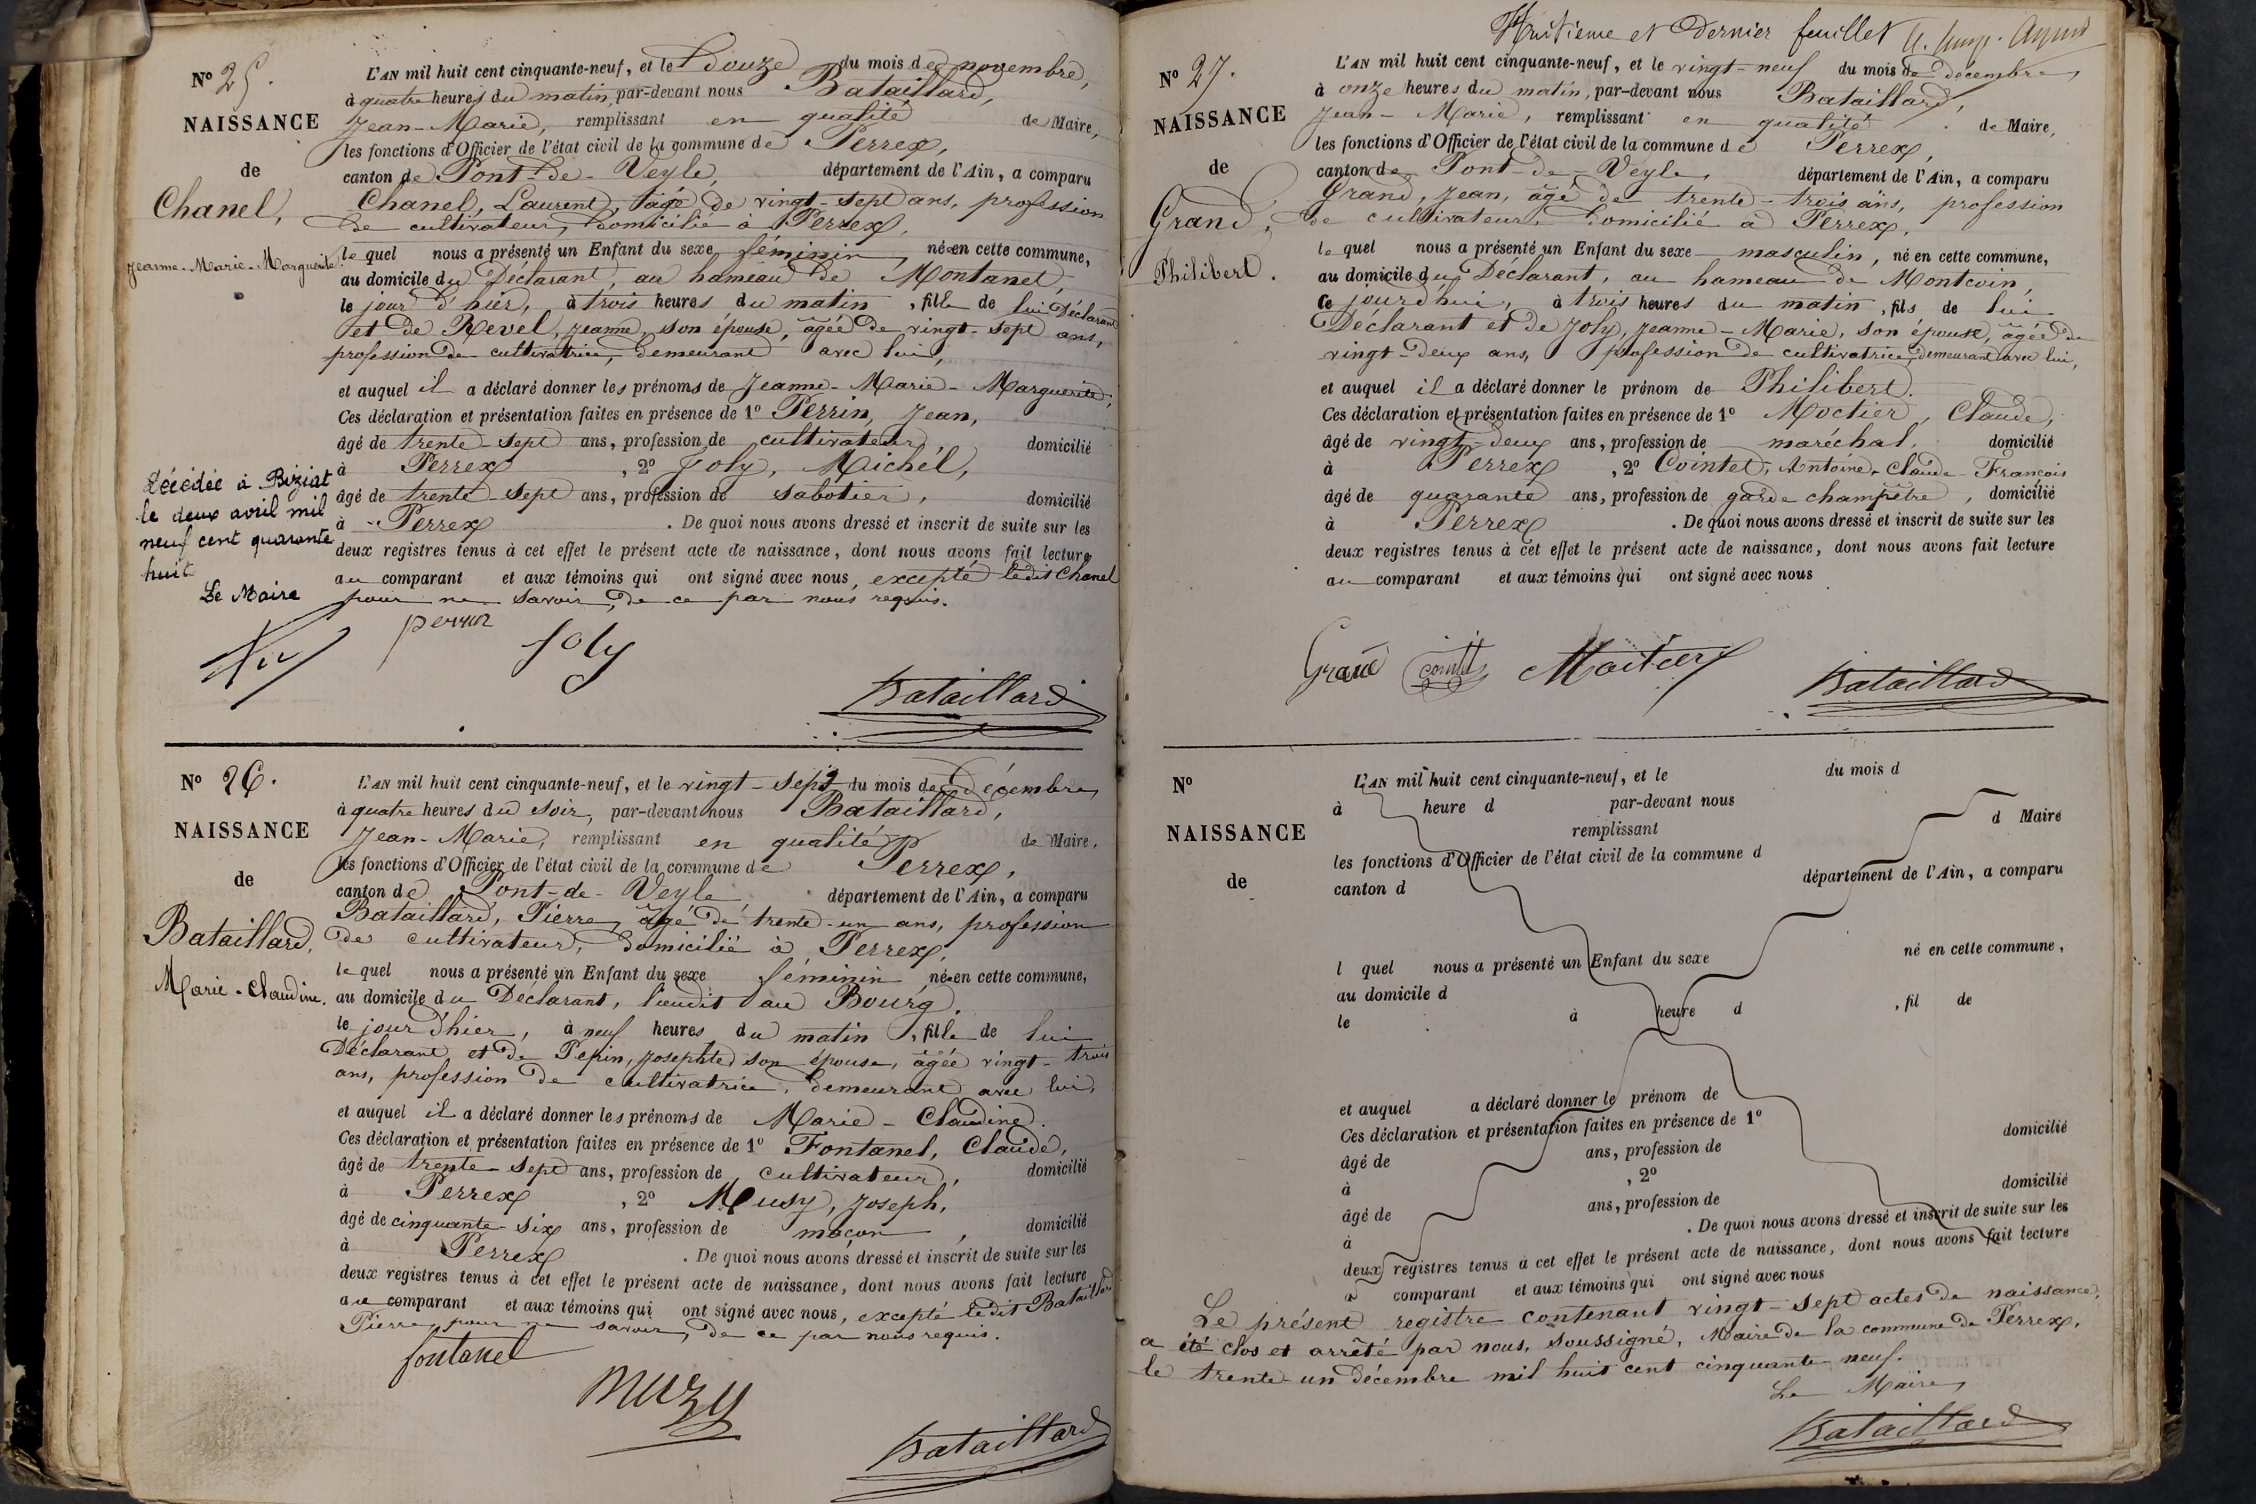 N° 25.
NAISSANCE
de
Chanel,
Jeanne-Marie-Marguerite
L'AN mil huit cent cinquante-neuf, et le douze du mois de novembre,
à quatre heures du matin, par-devant nous Bataillard,
Jean-Marie, remplissant en qualité de Maire,
les fonctions d'Officier de l'état civil de la commune de Perrex,
canton de Pont-de-Veyle, département de l'Ain, a comparu
Chanel, Laurent, âgé de vingt-sept ans, profession
de cultivateur, domicilié à Perrex,
le quel nous a présenté un Enfant du sexe féminin, née en cette commune,
au domicile du Déclarant, au hameau de Montanet,
le jour d'hier, à trois heures du matin, fille de lui Déclarant
et de Revel, Jeanne, son épouse, âgée de vingt-sept ans,
profession de cultivatrice, demeurant avec lui,
et auquel il a déclaré donner les prénoms de Jeanne-Marie-Marguerite,
Ces déclaration et présentation faites en présence de 1° Perrin, Jean,
âgé de trente-sept ans, profession de cultivateur, domicilié
à Perrex, 2° Joly, Michel,
âgé de trente-sept ans, profession de sabotier, domicilié
à Perrex. De quoi nous avons dressé et inscrit de suite sur les
deux registres tenus à cet effet le présent acte de naissance, dont nous avons fait lecture
au comparant et aux témoins qui ont signé avec nous, excepté ledit Chanel
pour ne savoir, de ce par nous requis.
Décédée à Biziat
le deux avril mil
neuf cent quarante
huit
Le Maire
perrin
Joly
Bataillard
N° 26.
NAISSANCE
de
Bataillard,
Marie-Claudine.
L'AN mil huit cent cinquante-neuf, et le vingt-sept du mois de Décembre,
à quatre heures du soir, par-devant nous Bataillard,
Jean-Marie, remplissant en qualité de Maire,
les fonctions d'Officier de l'état civil de la commune de Perrex,
canton de Pont-de-Veyle département de l'Ain, a comparu
Bataillard, Pierre, âgé de trente-un ans, profession
de cultivateur, domicilié à Perrex,
le quel nous a présenté un Enfant du sexe féminin née en cette commune,
au domicile du Déclarant, lieudit au Bourg,
le jour d'hier, à neuf heures du matin, fille de lui
Déclarant et de Pepin, Josephte, son épouse, âgée vingt-trois
ans, profession de cultivatrice, demeurant avec lui,
et auquel il a déclaré donner les prénoms de Marie-Claudine.
Ces déclaration et présentation faites en présence de 1° Fontanel, Claude,
âgé de trente-sept ans, profession de cultivateur, domicilié
à Perrex, 2° Musy, Joseph,
âgé de cinquante-six ans, profession de maçon, domicilié
à Perrex. De quoi nous avons dressé et inscrit de suite sur les
deux registres tenus à cet effet le présent acte de naissance, dont nous avons fait lecture
au comparant et aux témoins qui ont signé avec nous, excepté ledit Bataillard
Pierre, pour ne savoir, de ce par nous requis.
fontanel
muzy
Bataillard
Huitième et Dernier feuillet
N° 27.
NAISSANCE
de
Grand,
Philibert.
L'AN mil huit cent cinquante-neuf, et le vingt-neuf du mois de décembre,
à onze heures du matin, par-devant nous Bataillard,
Jean-Marie, remplissant en qualité de Maire,
les fonctions d'Officier de l'état civil de la commune de Perrex,
canton de Pont-de-Veyle, département de l'Ain, a comparu
Grand, Jean, âgé de trente-trois ans, profession
de cultivateur, domicilié à Perrex,
le quel nous a présenté un Enfant du sexe masculin, né en cette commune,
au domicile du Déclarant, au hameau de Montcoin,
Ce jourd'hui, à trois heures du matin, fils de lui
Déclarant et de Joly, Jeanne-Marie, son épouse, âgée de
vingt-deux ans, profession de cultivatrice, demeurant avec lui,
et auquel il a déclaré donner le prénom de Philibert.
Ces déclaration et présentation faites en présence de 1° Moctier, Claude,
âgé de vingt-deux ans, profession de maréchal, domicilié
à Perrex, 2° Cointet, Antoine-Claude-François
âgé de quarante ans, profession de garde champêtre, domicilié
à Perrex. De quoi nous avons dressé et inscrit de suite sur les
deux registres tenus à cet effet le présent acte de naissance, dont nous avons fait lecture
au comparant et aux témoins qui ont signé avec nous
Grand Moctier
Bataillard
N°
NAISSANCE
de
L'AN mil huit cent cinquante-neuf, et le du mois d
à heure d par-devant nous
remplissant d Maire
les fonctions d'Officier de l'état civil de la commune d
canton d département de l'Ain, a comparu
l quel nous a présenté un Enfant du sexe né en cette commune,
au domicile d
le à heure d , fil de
et auquel a déclaré donner le prénom de
Ces déclaration et présentation faites en présence de 1°
âgé de ans, profession de domicilié
à , 2°
âgé de ans, profession de domicilié
à . De quoi nous avons dressé et inscrit de suite sur les
deux registres tenus à cet effet le présent acte de naissance, dont nous avons fait lecture
a comparant et aux témoins qui ont signé avec nous
Le présent registre contenant vingt-sept actes de naissance,
a été clos et arrêté par nous, soussigné, Maire de la commune de Perrex,
le trente-un décembre mil huit cent cinquante-neuf.
Le Maire,
Bataillard